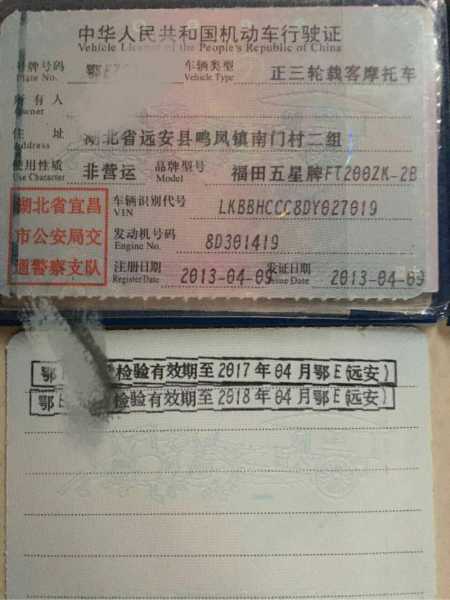 中华人民共和国机动车行驶证
Vehicle License of the People's Republic of China
号牌号码 鄂E 车辆类型 正三轮载客摩托车
Plate No. Vehicle Type
所有人
Owner
住址 湖北省远安县鸣凤镇南门村二组
Address
使用性质 非营运 品牌型号 福田五星牌FT200ZK-2B
Use Character Model
湖北省宜昌 车辆识别代号 LKBBHCCC8DY027019
VIN
市公安局交 发动机号码 8D301419
Engine No.
通警察支队 注册日期 2013-04-09 发证日期 2013-04-09
Register Date Issue Date
鄂E 检验有效期至2017年04月鄂E(远安)
鄂E 检验有效期至2018年04月鄂E(远安)